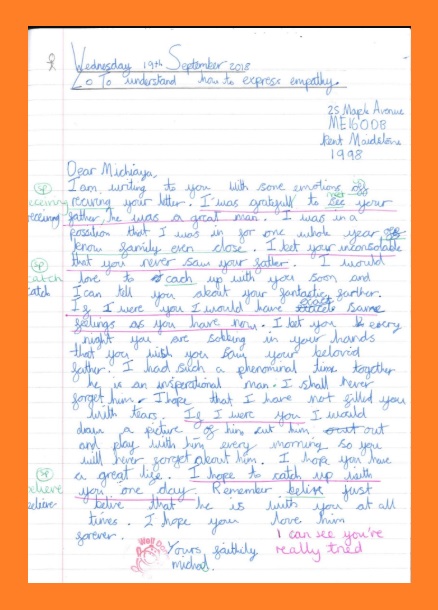 Wednesday 19th September 2018
Lo To understand how to express empathy.
25 Maple Avenue
ME16 0DB
Kent Maidstone
1998
Dear Michiaya,
I am writing to you with some emotions of
receiving recuving your letter. I was gratefull to see your
receiving father, he was a great man. I was in a
possition that I was in for one whole year
know family even close. I bet your inconsolable
that you never saw your father. I would
catch love to cach up with you soon and
catch I can tell you about your fantastic farther.
If I were you I would have exact same
feelings as you have now. I bet you every
night you are sobbing in your hands
that you wish you saw your beloved
father. I had such a phenominal time together
he is an insperational man. I shall never
forget him. I hope that I have not filled you
with tears. If I were you I would
draw a picture of him cut him out
and play with him every morning so you
will never forget about him. I hope you have
a great life. I hope to catch up with
believe you one day. Remember belive just
believe belive that he is with you at all
times. I hope you love him
forever. I can see you're
Yours, faithily really tried
michal.
Well Done